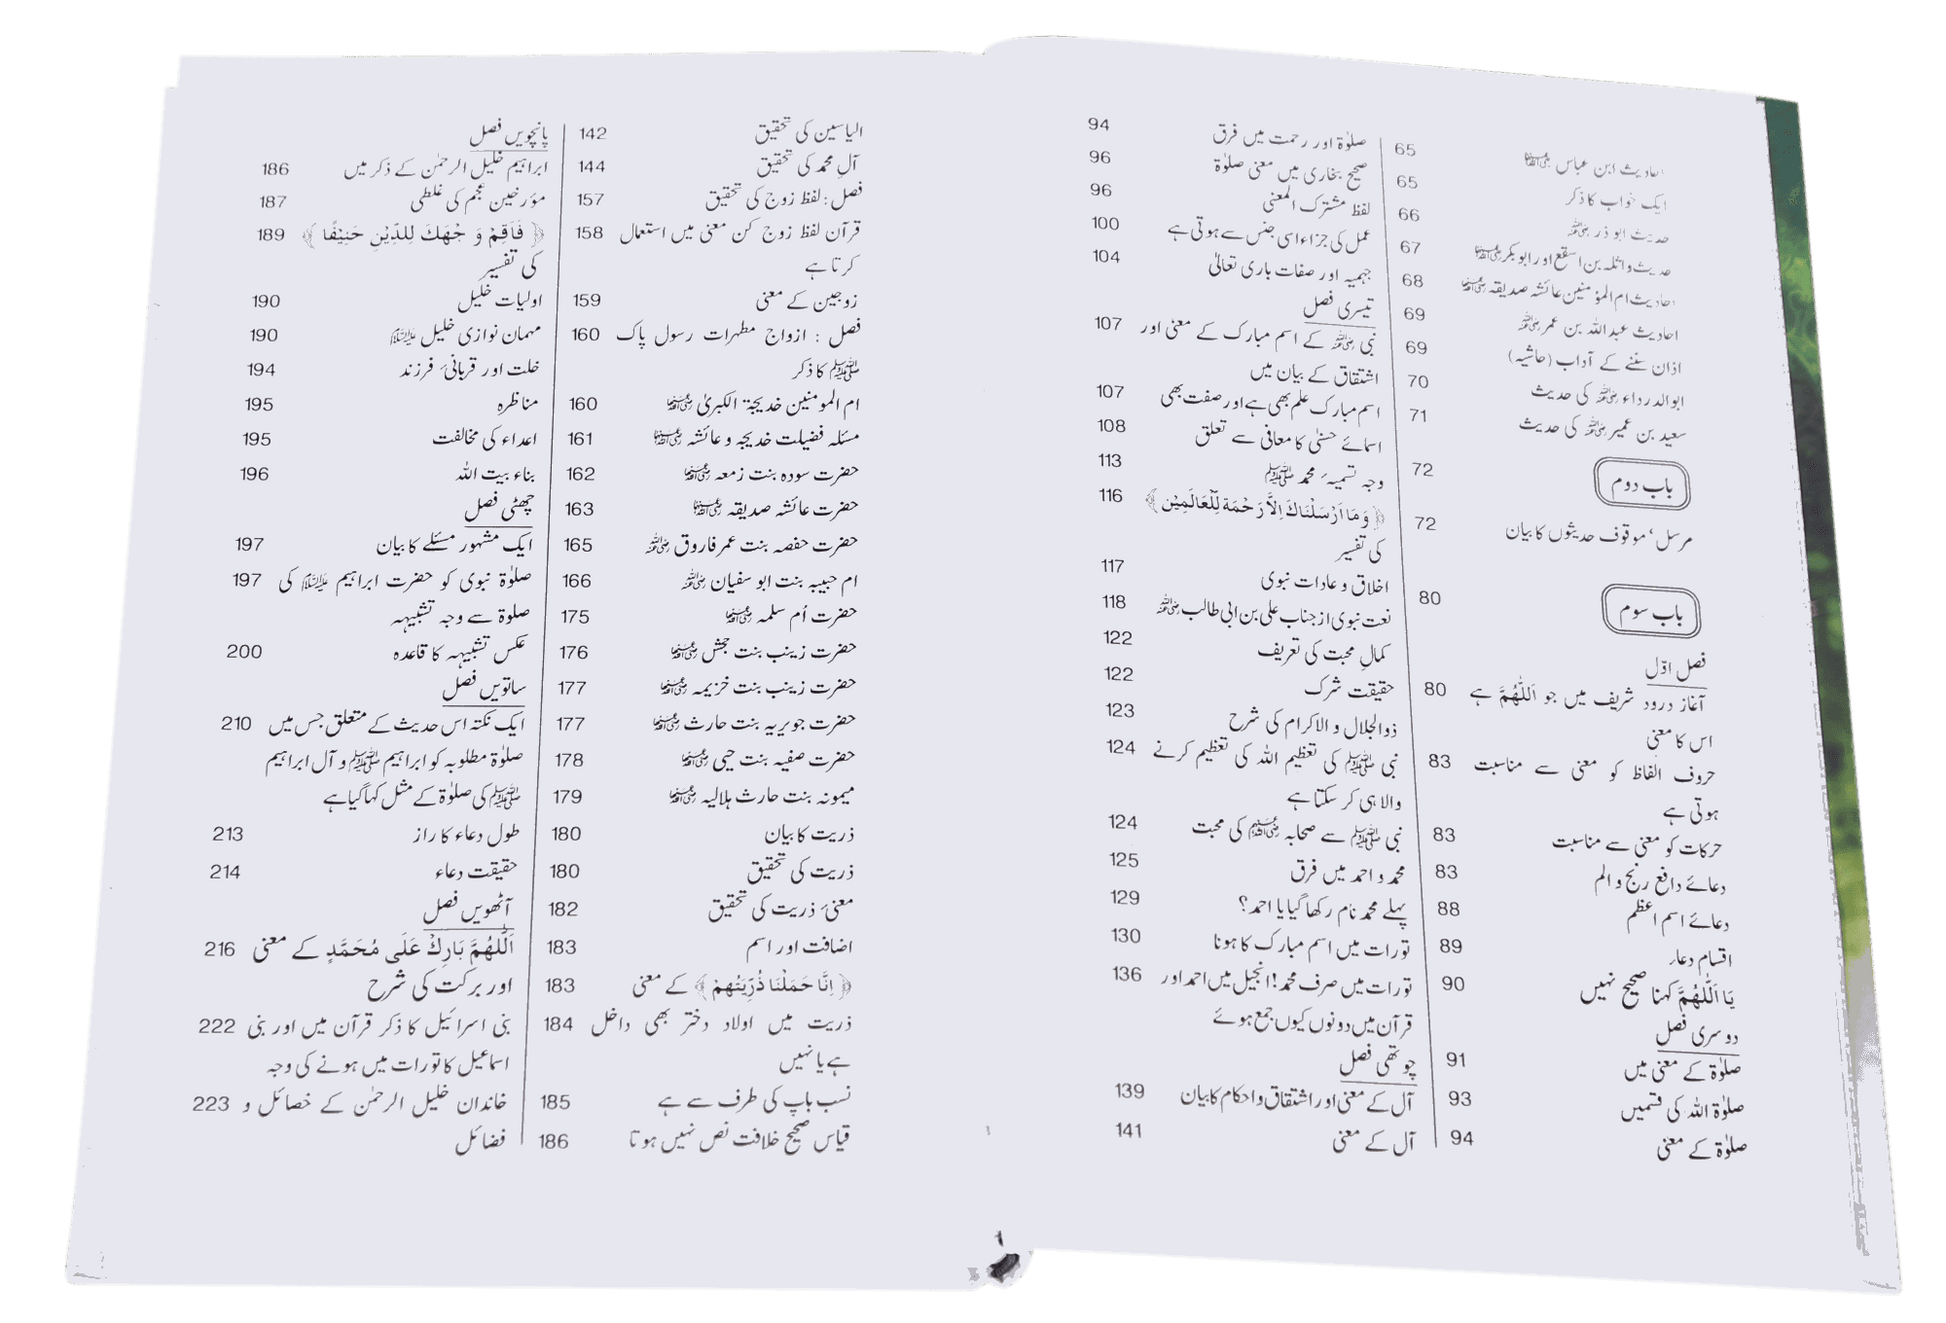 احادیث ابن عباس رضی اللہ عنہما 65
ایک خواب کا ذکر 65
حدیث ابو ذر رضی اللہ عنہ 66
حدیث واثلہ بن اسقع اور ابوبکر رضی اللہ عنہما 67
احادیث ام المؤمنین عائشہ صدیقہ رضی اللہ عنہا 68
احادیث عبداللہ بن عمر رضی اللہ عنہ 69
اذان سننے کے آداب (حاشیہ) 69
ابوالدرداء رضی اللہ عنہ کی حدیث 70
سعید بن عمیر رضی اللہ عنہ کی حدیث 71
باب دوم 72
مرسل ‘ موقوف حدیثوں کا بیان 72
باب سوم 80
فصل اوّل
آغاز درود شریف میں جو اَللّٰھُمَّ ہے 80
اس کا معنی
حروف الفاظ کو معنی سے مناسبت 83
ہوتی ہے
حرکات کو معنی سے مناسبت 83
دعائے دافع رنج و الم 83
دعائے اسم اعظم 88
اقسام دعاء 89
یَا اَللّٰھُمَّ کہنا صحیح نہیں 90
دوسری فصل
صلوٰۃ کے معنی میں 91
صلوٰۃ اللہ کی قسمیں 93
صلوٰۃ کے معنی 94
صلوٰۃ اور رحمت میں فرق 94
صحیح بخاری میں معنی صلوٰۃ 96
لفظ مشترک المعنی 96
عمل کی جزاء اسی جنس سے ہوتی ہے 100
جہمیہ اور صفات باری تعالیٰ 104
تیسری فصل
نبی ﷺ کے اسم مبارک کے معنی اور 107
اشتقاق کے بیان میں
اسم مبارک علم بھی ہے اور صفت بھی 107
اسمائے حسنیٰ کا معانی سے تعلق 108
وجہ تسمیہ محمد ﷺ 113
﴿ وَمَا اَرْسَلْنَاكَ اِلاَّ رَحْمَة لِّلْعَالَمِيْن ﴾ 116
کی تفسیر
اخلاق و عادات نبوی 117
نعت نبوی از جناب علی بن ابی طالب رضی اللہ عنہ 118
کمالِ محبت کی تعریف 122
حقیقت شرک 122
ذوالجلال والاکرام کی شرح 123
نبی ﷺ کی تعظیم اللہ کی تعظیم کرنے 124
والا ہی کر سکتا ہے
نبی ﷺ سے صحابہ رضی اللہ عنہم کی محبت 124
محمد و احمد میں فرق 125
پہلے محمد نام رکھا گیا یا احمد؟ 129
تورات میں اسم مبارک کا ہونا 130
تورات میں صرف محمد! انجیل میں احمد اور 136
قرآن میں دونوں کیوں جمع ہوئے
چوتھی فصل
آل کے معنی اور اشتقاق و احکام کا بیان 139
آل کے معنی 141
الیاسین کی تحقیق 142
آلِ محمد کی تحقیق 144
فصل : لفظ زوج کی تحقیق 157
قرآن لفظ زوج کن معنی میں استعمال 158
کرتا ہے
زوجین کے معنی 159
فصل : ازواج مطہرات رسول پاک 160
ﷺ کا ذکر
ام المومنین خدیجۃ الکبریٰ رضی اللہ عنہا 160
مسئلہ فضیلت خدیجہ و عائشہ رضی اللہ عنہما 161
حضرت سودہ بنت زمعہ رضی اللہ عنہا 162
حضرت عائشہ صدیقہ رضی اللہ عنہا 163
حضرت حفصہ بنت عمر فاروق رضی اللہ عنہ 165
ام حبیبہ بنت ابو سفیان رضی اللہ عنہ 166
حضرت اُم سلمہ رضی اللہ عنہا 175
حضرت زینب بنت جحش رضی اللہ عنہا 176
حضرت زینب بنت خزیمہ رضی اللہ عنہا 177
حضرت جویریہ بنت حارث رضی اللہ عنہا 177
حضرت صفیہ بنت حیی رضی اللہ عنہا 178
میمونہ بنت حارث ہلالیہ رضی اللہ عنہا 179
ذریت کا بیان 180
ذریت کی تحقیق 180
معنیٔ ذریت کی تحقیق 182
اضافت اور اسم 183
﴿ اِنَّا حَمَلْنَا ذُرِّيَّتَهمْ ﴾ کے معنی 183
ذریت میں اولاد دختر بھی داخل 184
ہے یا نہیں
نسب باپ کی طرف سے ہے 185
قیاس صحیح خلافت نص نہیں ہوتا 186
پانچویں فصل
ابراہیم خلیل الرحمٰن کے ذکر میں 186
مؤرخین عجم کی غلطی 187
﴿ فَاَقِمْ وَ جْهَكَ لِلدِّيْنِ حَنِيْفًا ﴾ 189
کی تفسیر
اولیات خلیل 190
مہمان نوازی خلیل علیہ السلام 190
خلت اور قربانیٔ فرزند 194
مناظرہ 195
اعداء کی مخالفت 195
بناء بیت اللہ 196
چھٹی فصل
ایک مشہور مسئلے کا بیان 197
صلوٰۃ نبوی کو حضرت ابراہیم علیہ السلام کی 197
صلوۃ سے وجہ تشبیہہ
عکس تشبیہہ کا قاعدہ 200
ساتویں فصل
ایک نکتہ اس حدیث کے متعلق جس میں 210
صلوٰۃ مطلوبہ کو ابراہیم ﷺ و آل ابراہیم
ﷺ کی صلوٰۃ کے مثل کہا گیا ہے
طول دعاء کا راز 213
حقیقت دعاء 214
آٹھویں فصل
اَللّٰهُمَّ بَارِكْ عَلَى مُحَمَّدٍ کے معنی 216
اور برکت کی شرح
بنی اسرائیل کا ذکر قرآن میں اور بنی 222
اسماعیل کا تورات میں ہونے کی وجہ
خاندان خلیل الرحمٰن کے خصائل و 223
فضائل